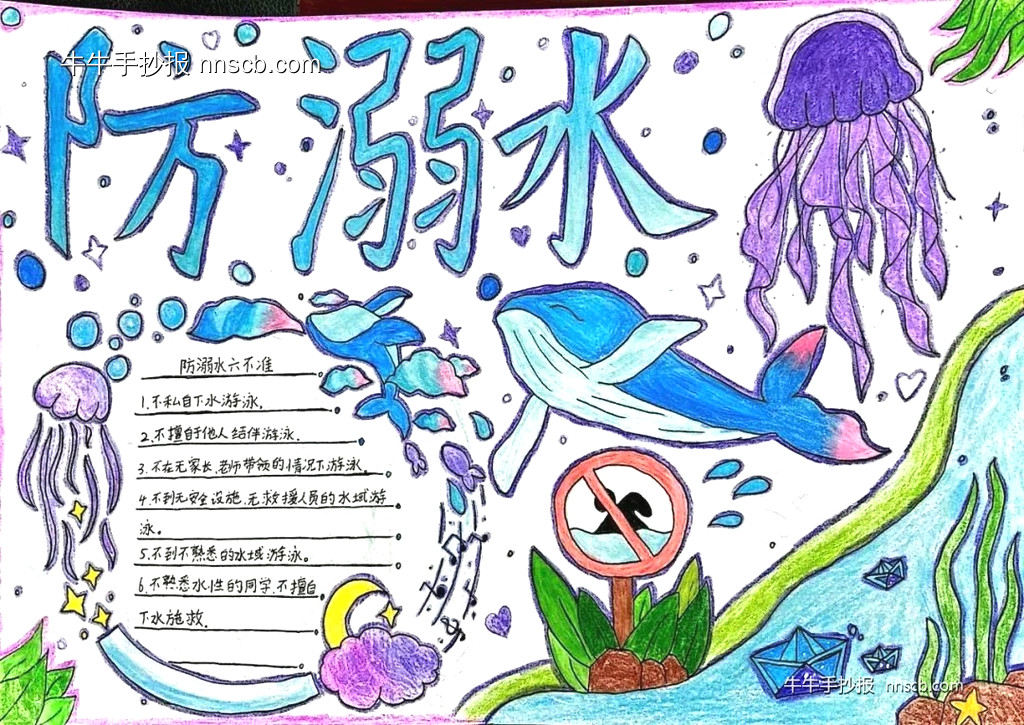 牛牛手抄报 nnscb.com
防溺水
防溺水六不准
1.不私自下水游泳.
2.不擅于他人结伴游泳.
3.不在无家长.老师带领的情况下游泳.
4.不到无安全设施.无救援人员的水域游
泳.
5.不到不熟悉的水域游泳。
6.不熟悉水性的同学.不擅自
下水施救.
牛牛手抄报 nnscb.com